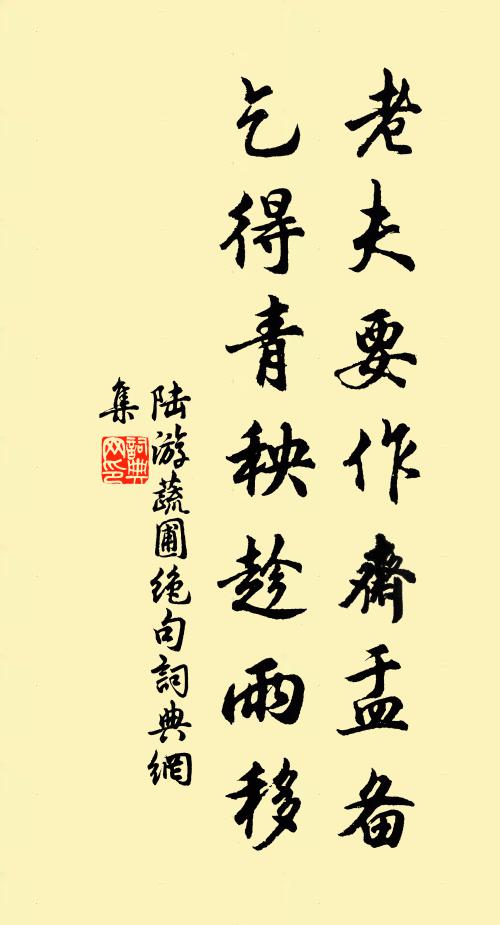 老夫要作齋盂备
乞得青秧趁雨移
陆游蔬圃绝句詞典網
集
詞典